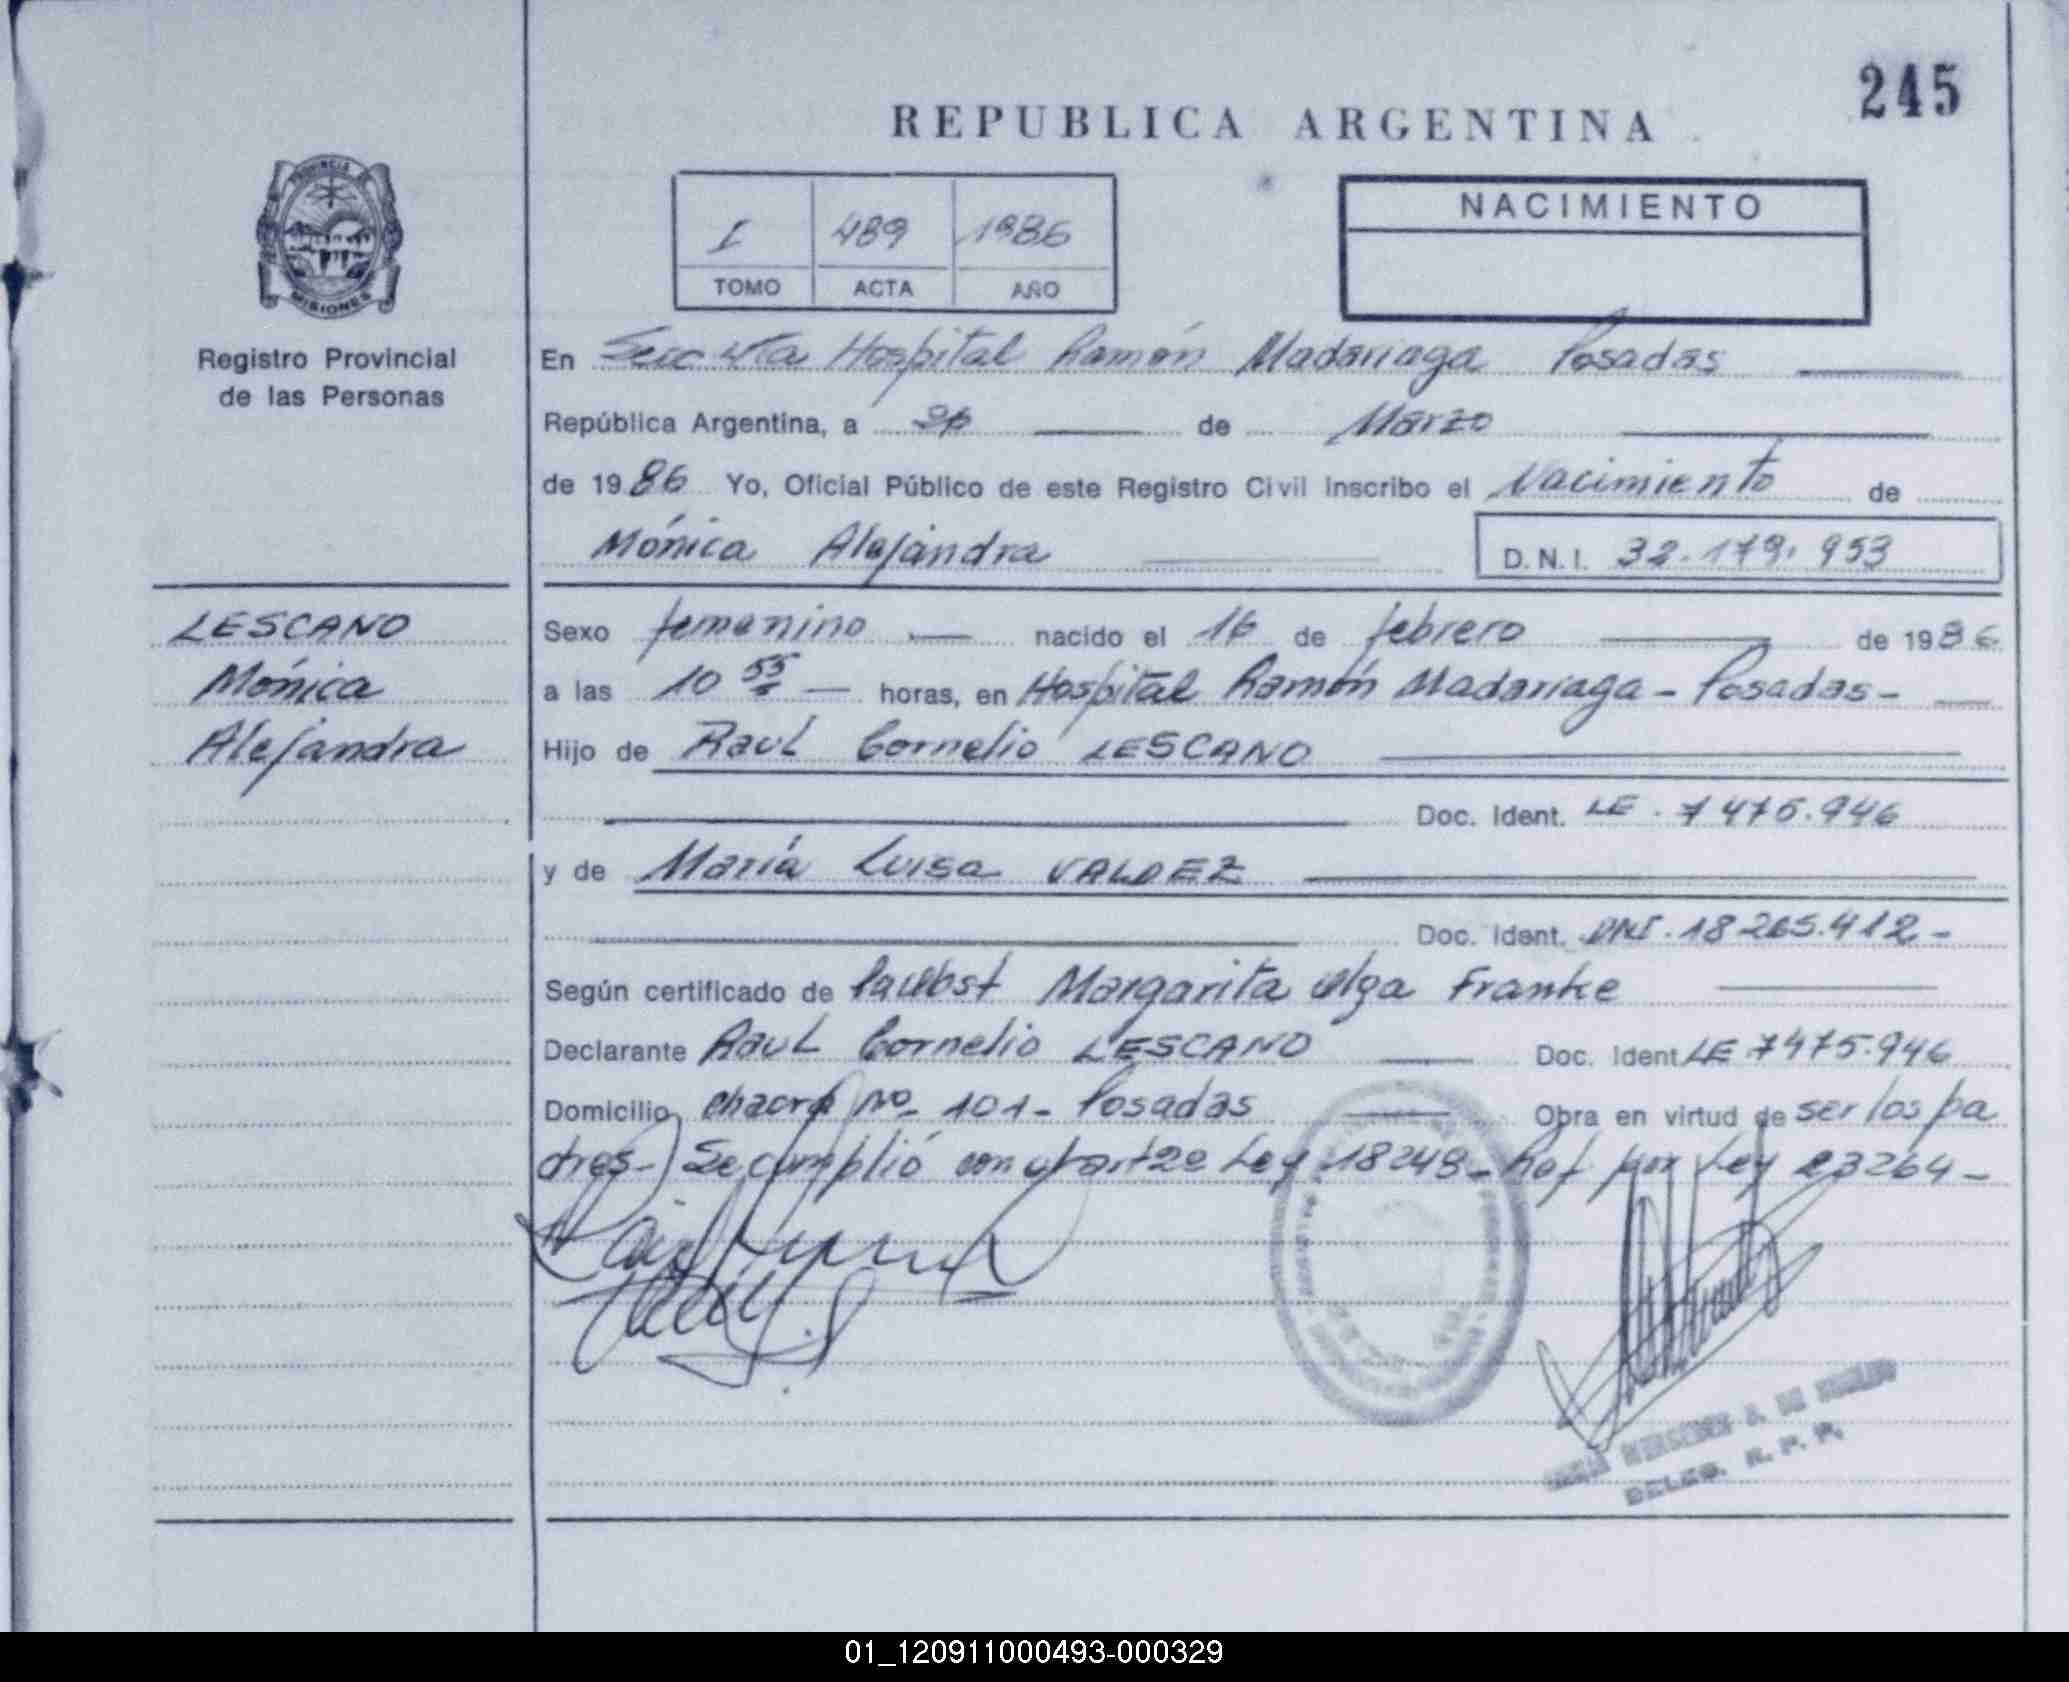 245
REPUBLICA ARGENTINA
PROVINCIA DE
MISIONES
Registro Provincial
de las Personas
I 489 1986
TOMO ACTA AÑO
NACIMIENTO
En Secc 4ta Hospital Ramón Madariaga Posadas
República Argentina, a de Marzo
de 1986 Yo, Oficial Público de este Registro Civil inscribo el Nacimiento de
Mónica Alejandra
D.N.I. 32.179.953
LESCANO
Mónica
Alejandra
Sexo femenino nacido el 16 de febrero de 1986
a las 10 55 horas, en Hospital Ramón Madariaga - Posadas -
Hijo de Raul Cornelio LESCANO
Doc. Ident. LE. 7475.946
y de María Luisa VALDEZ
Doc. Ident. DNI. 18265.412 -
Según certificado de Margarita Olga Franke
Declarante Raul Cornelio LESCANO Doc. Ident LE 7475.946
Domicilio chacra No- 101- Posadas Obra en virtud de ser los pa
dres-) Se cumplió con art 2º Ley 18248- Ref por Ley 23264-
DELEG. R. P. P.
01_120911000493-000329